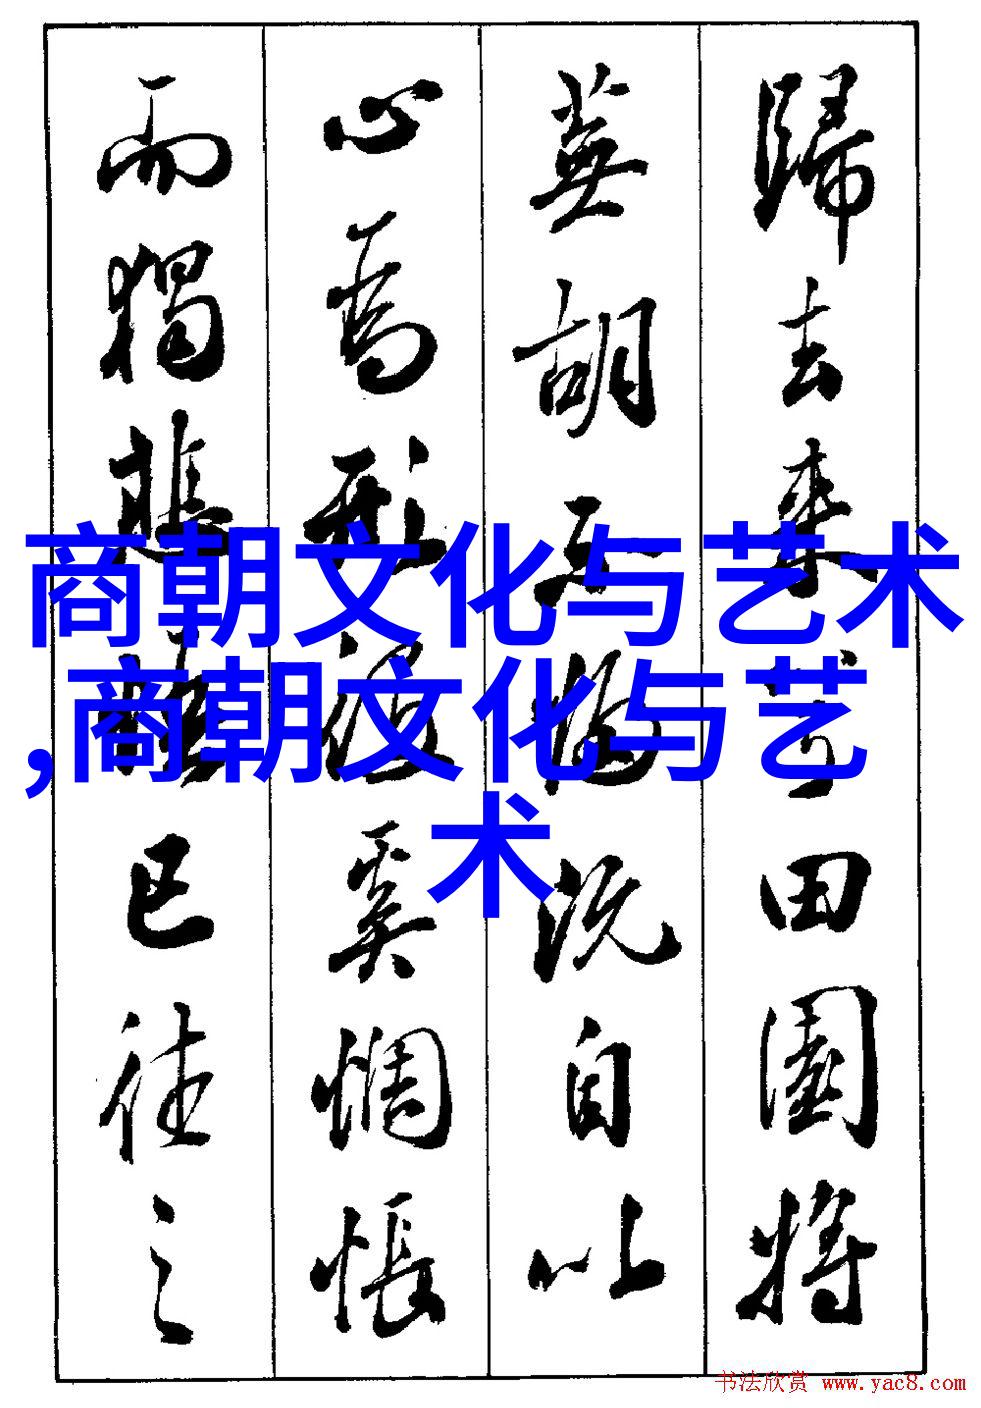 歸去來兮田園將
蕪胡不既自以
心為形役奚惆悵
而獨悲已往之
商朝文化与艺术
,商朝文化与艺
术
书法欣赏 www.yac8.com